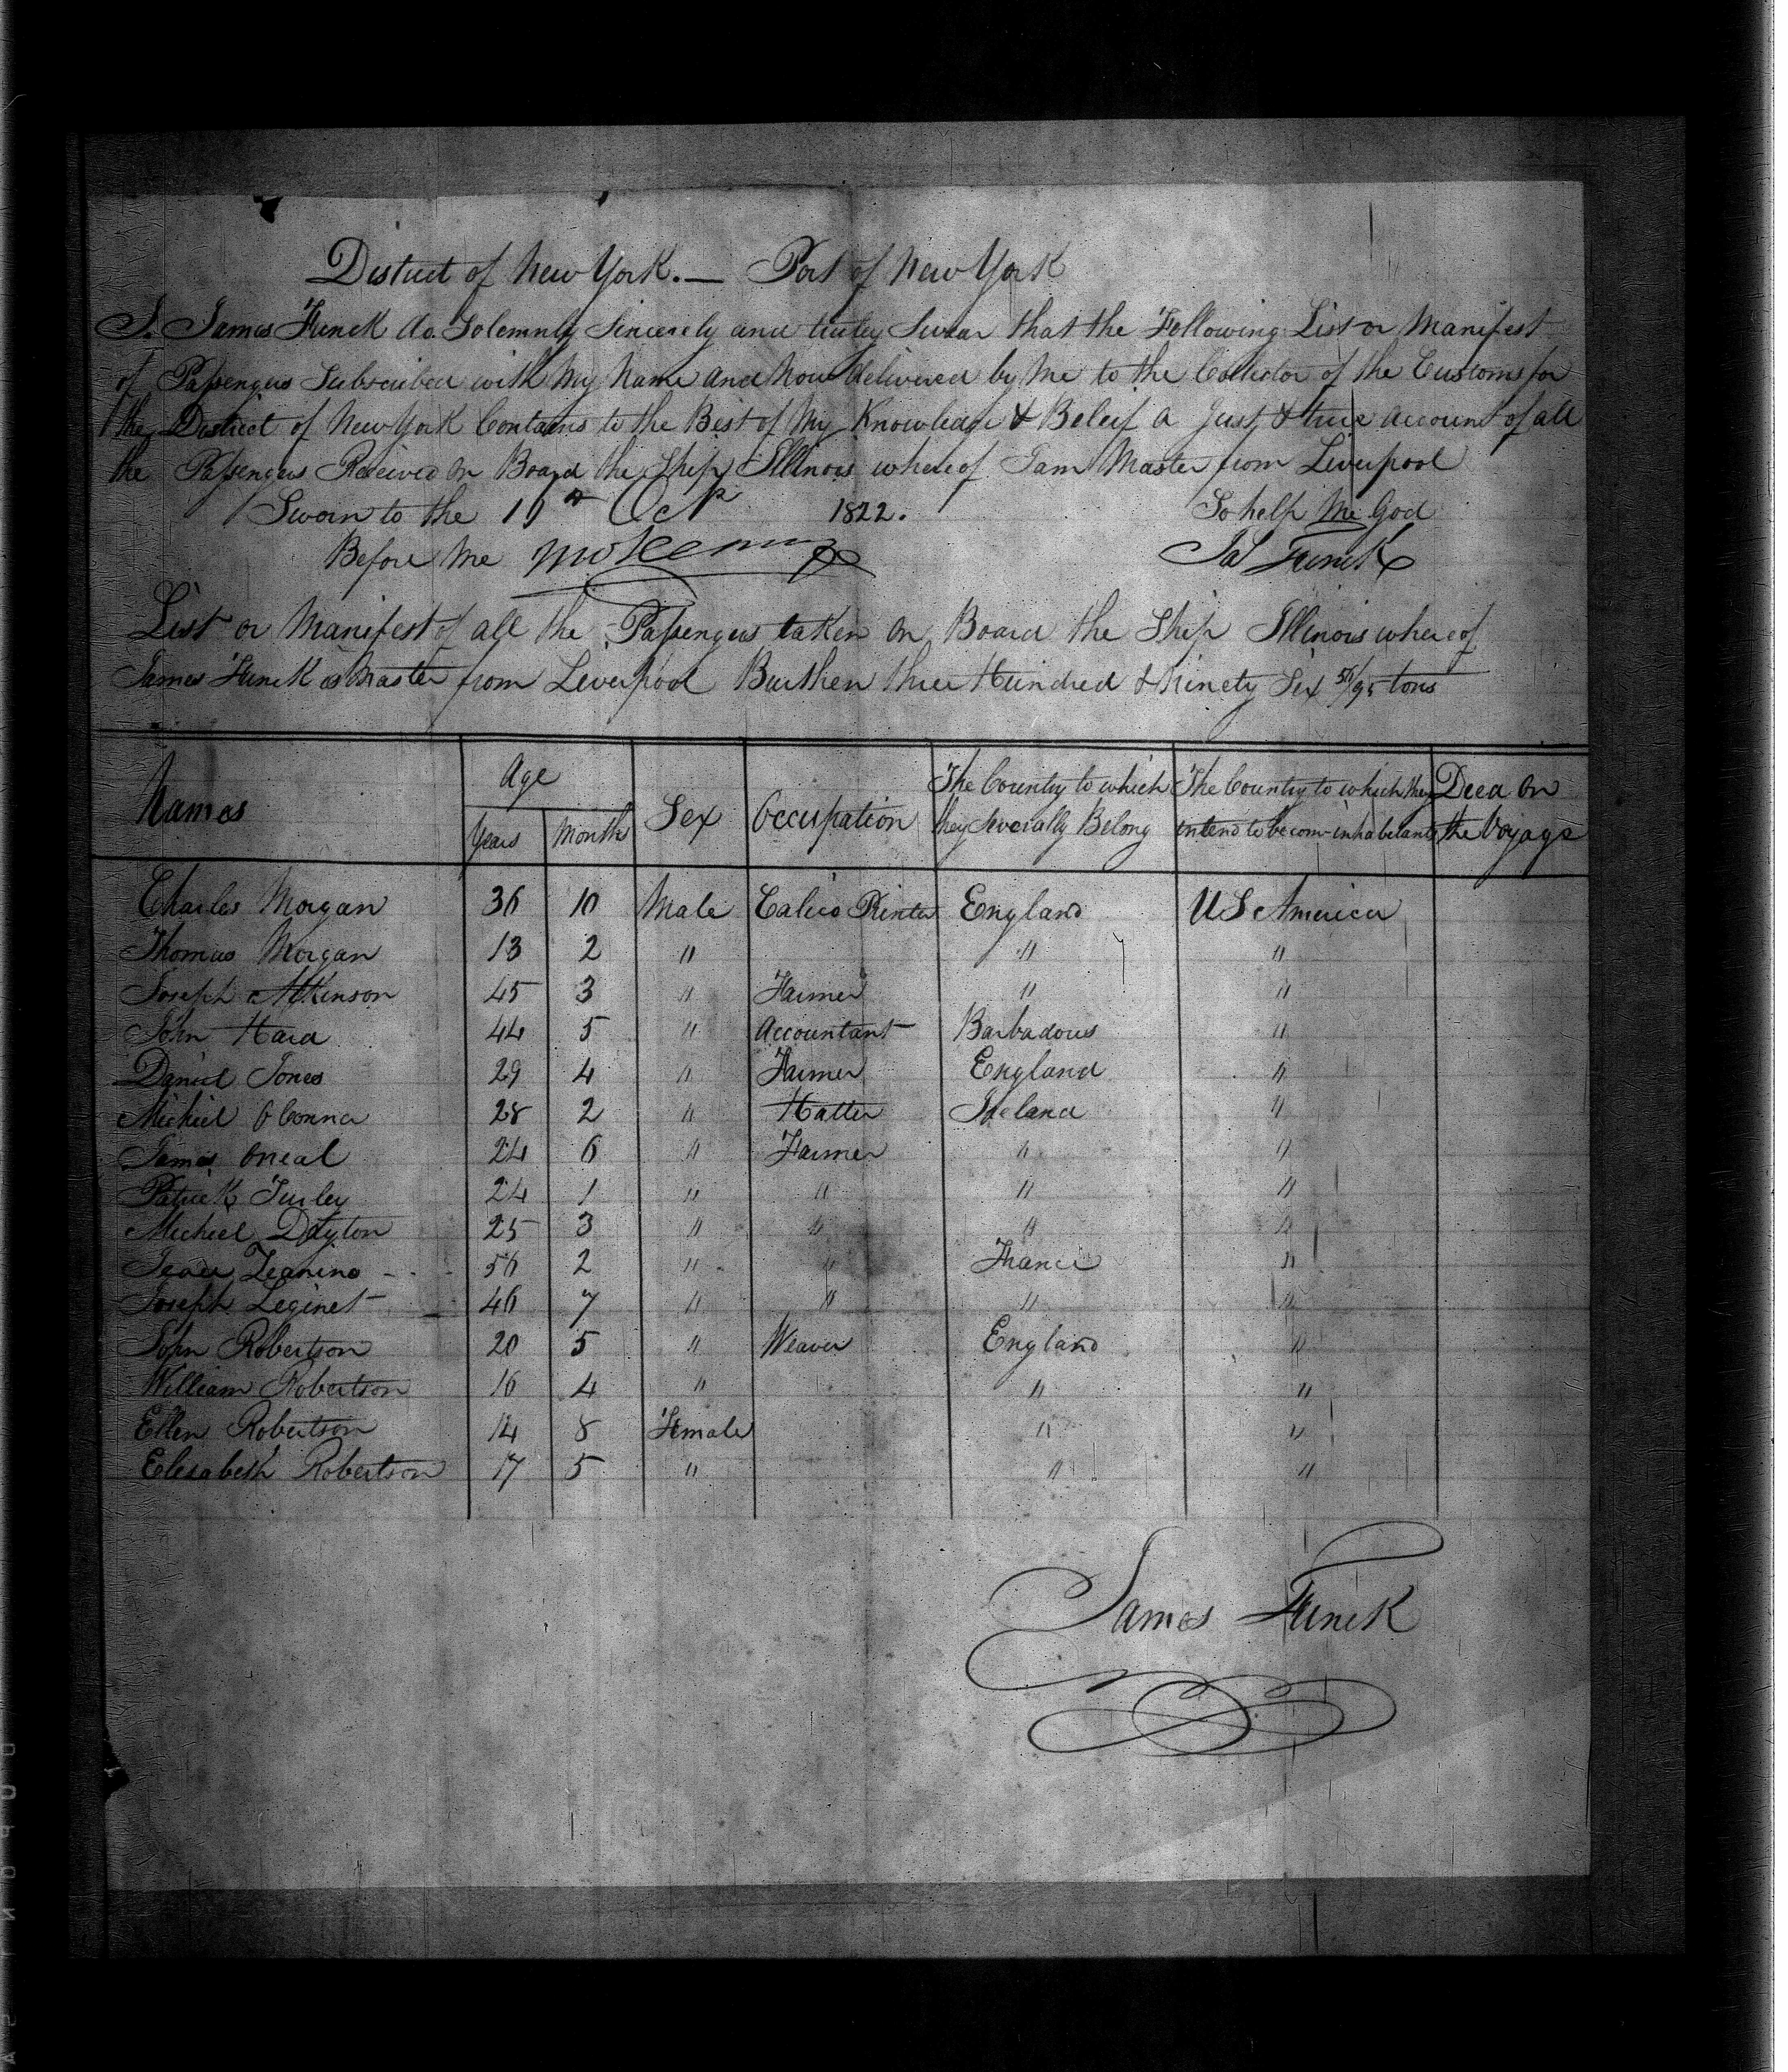 District of New York. — Port of New York
I. James Funck do Solemnly Sincerely and truley Swear that the Following List or Manifest
of Passengers Subscribed with My Name and Now delivered by Me to the Collector of the Customs for
the District of New York Contains to the Best of My Knowledge & Beleif a Just & true account of all
the Passengers Received on Board the Ship Illinois whereof I am Master from Liverpool
Sworn to the Oct 1822. So help Me God
Before Me Ja Funck
List or Manifest of all the Passengers taken on Board the Ship Illinois whereof
James Funck is Master from Liverpool Burthen three Hundred & Ninety Six /95 tons
Names Age Years Month Sex Occupation The Country to which they Severally Belong The Country to which they intend to becom inhabetants Deed on the Voyage
Charles Morgan 36 10 Male Calico Printer England US America
Thomas Morgan 13 2 " " "
Joseph Atkinson 45 3 " Farmer " "
John Hard 44 5 " Accountant Barbadous "
Daniel Jones 29 4 " Farmer England "
Michiel OConner 28 2 " Hatter Ireland "
James Oneal 24 6 " Farmer " "
Patrick Turley 24 1 " " " "
Michiel Dayton 25 3 " " " "
56 2 " " France "
Joseph Leginet 46 7 " " " "
John Robertson 20 5 " Weaver England "
William Robertson 16 4 " " "
Ellen Robertson 14 8 Female " "
Elesabeth Robertson 17 5 " " "
James Funck